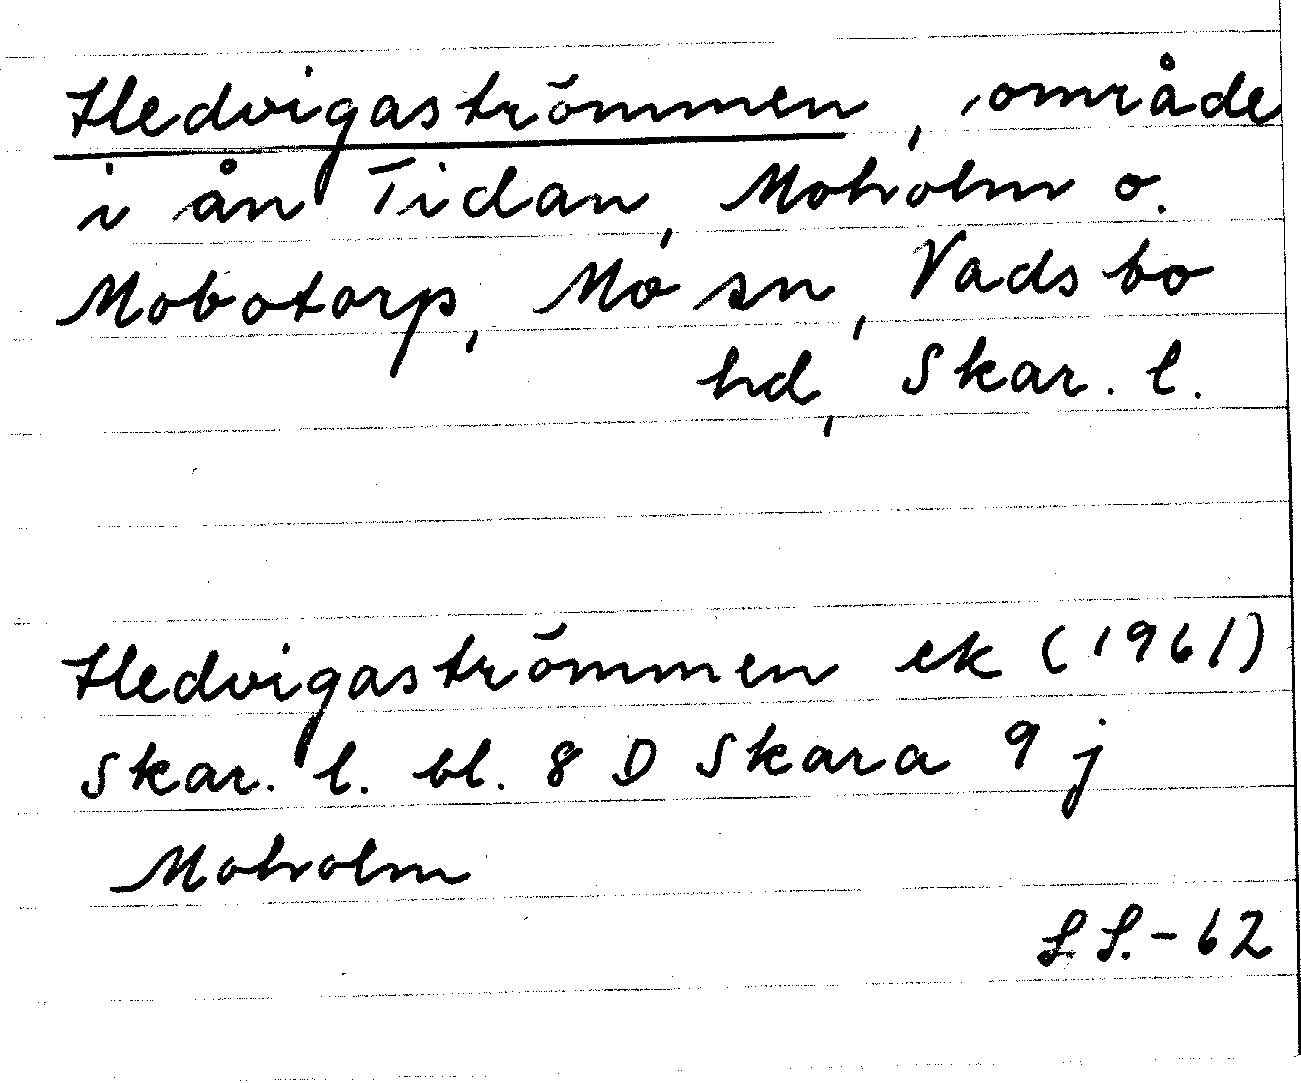 Hedvigaströmmen, område
i ån Tidan, Moholm o.
Mobotorp, Mo sn, Vadsbo
hd, Skar. l.
Hedvigaströmmen ek (1961)
Skar. l. bl. 8 D Skara 9 j
Moholm
S.S.-62